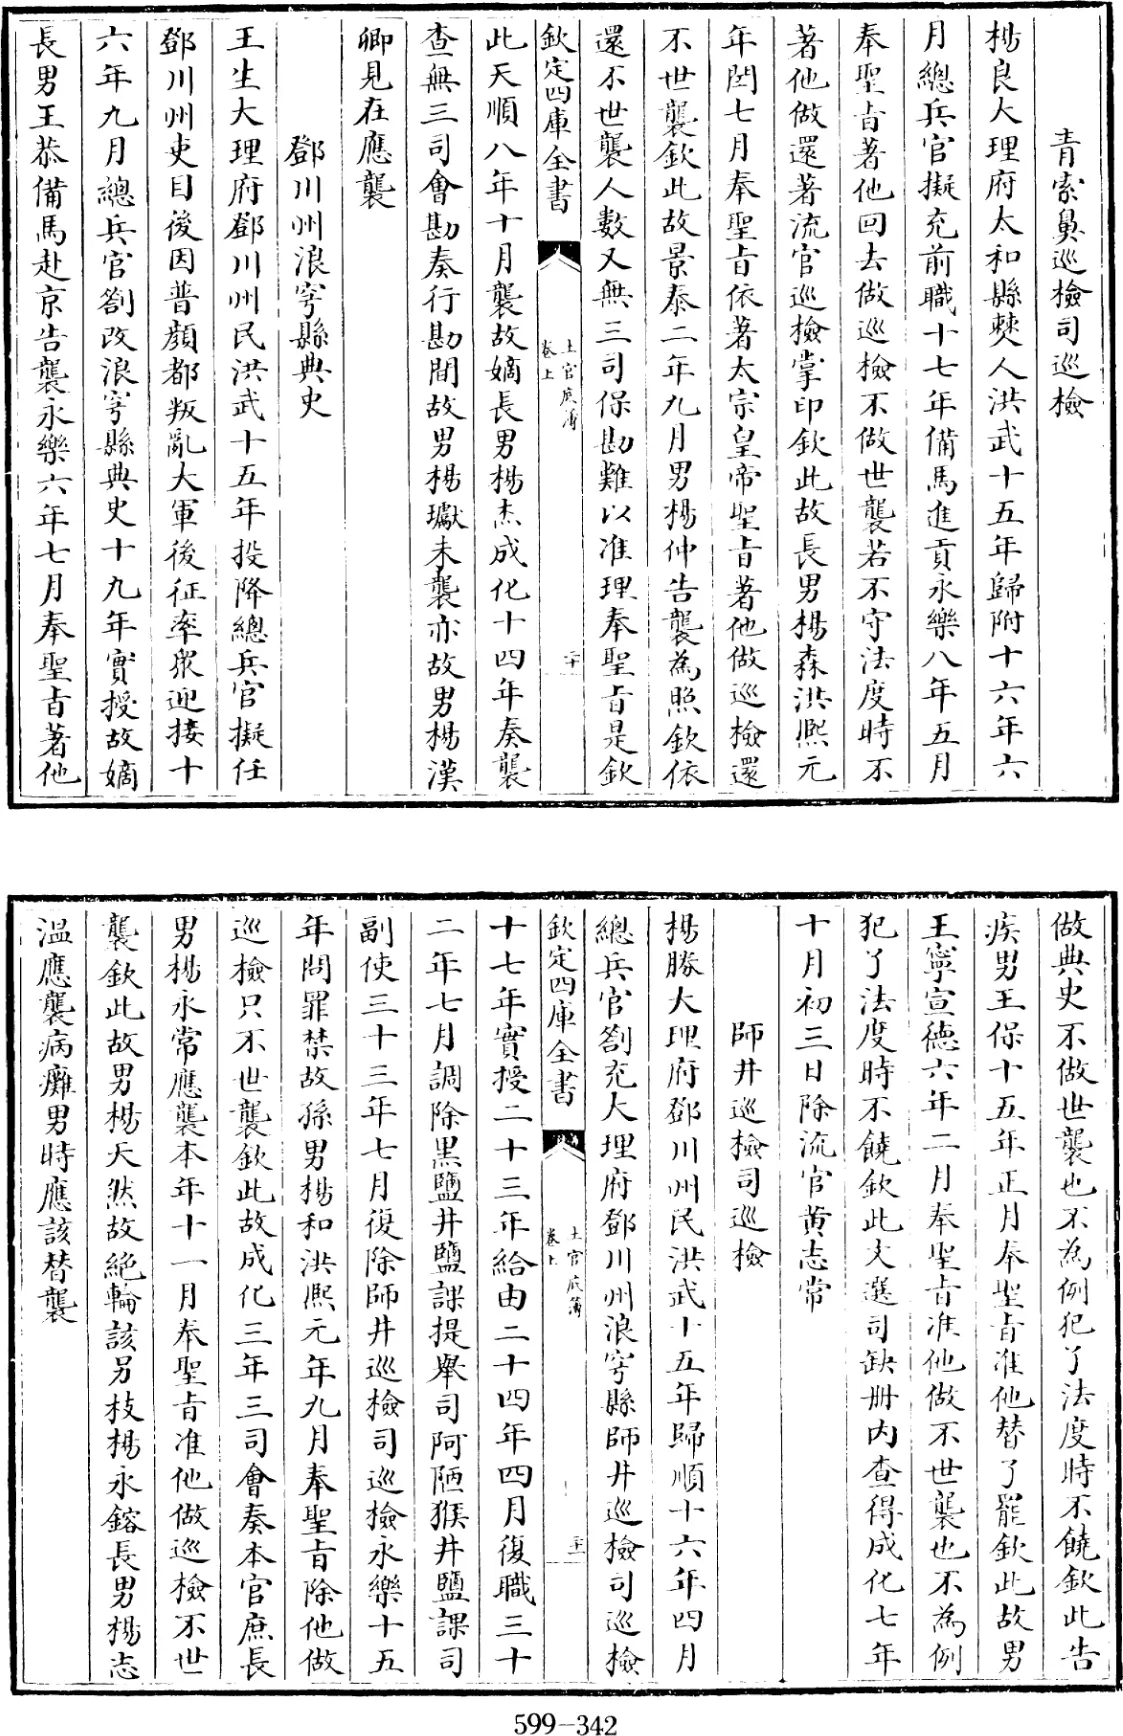 青索鼻巡檢司巡檢
楊良大理府太和縣僰人洪武十五年歸附十六年六
月總兵官擬充前職十七年備馬進貢永樂八年五月
奉聖旨著他回去做巡檢不做世襲若不守法度時不
著他做還著流官巡檢掌印欽此故長男楊森洪熙元
年閏七月奉聖旨依著太宗皇帝聖旨著他做巡檢還
不世襲欽此故景泰二年九月男楊仲告襲為照欽依
還不世襲人數又無三司保勘難以准理奉聖旨是欽
欽定四庫全書
土官底簿
卷上
二十
此天順八年十月襲故嫡長男楊杰成化十四年奏襲
查無三司會勘奏行勘間故男楊瓛未襲亦故男楊漢
卿見在應襲
鄧川州浪穹縣典史
王生大理府鄧川州民洪武十五年投降總兵官擬任
鄧川州吏目後因普顏都叛亂大軍後征率眾迎接十
六年九月總兵官劄改浪穹縣典史十九年實授故嫡
長男王恭備馬赴京告襲永樂六年七月奉聖旨著他
做典史不做世襲也不為例犯了法度時不饒欽此告
疾男王保十五年正月奉聖旨准他替了罷欽此故男
王寧宣德六年二月奉聖旨准他做不世襲也不為例
犯了法度時不饒欽此文選司缺冊內查得成化七年
十月初三日除流官黃志常
師井巡檢司巡檢
楊勝大理府鄧川州民洪武十五年歸順十六年四月
總兵官劄充大理府鄧川州浪穹縣師井巡檢司巡檢
欽定四庫全書
土官底簿
卷上
二十一
十七年實授二十三年給由二十四年四月復職三十
二年七月調除黑鹽井鹽課提舉司阿陋猴井鹽課司
副使三十三年七月復除師井巡檢司巡檢永樂十五
年問罪禁故孫男楊和洪熙元年九月奉聖旨除他做
巡檢只不世襲欽此故成化三年三司會奏本官庶長
男楊永常應襲本年十一月奉聖旨准他做巡檢不世
襲欽此故男楊天然故絕輪該另枝楊永鎔長男楊志
溫應襲病癱男時應該替襲
599-342